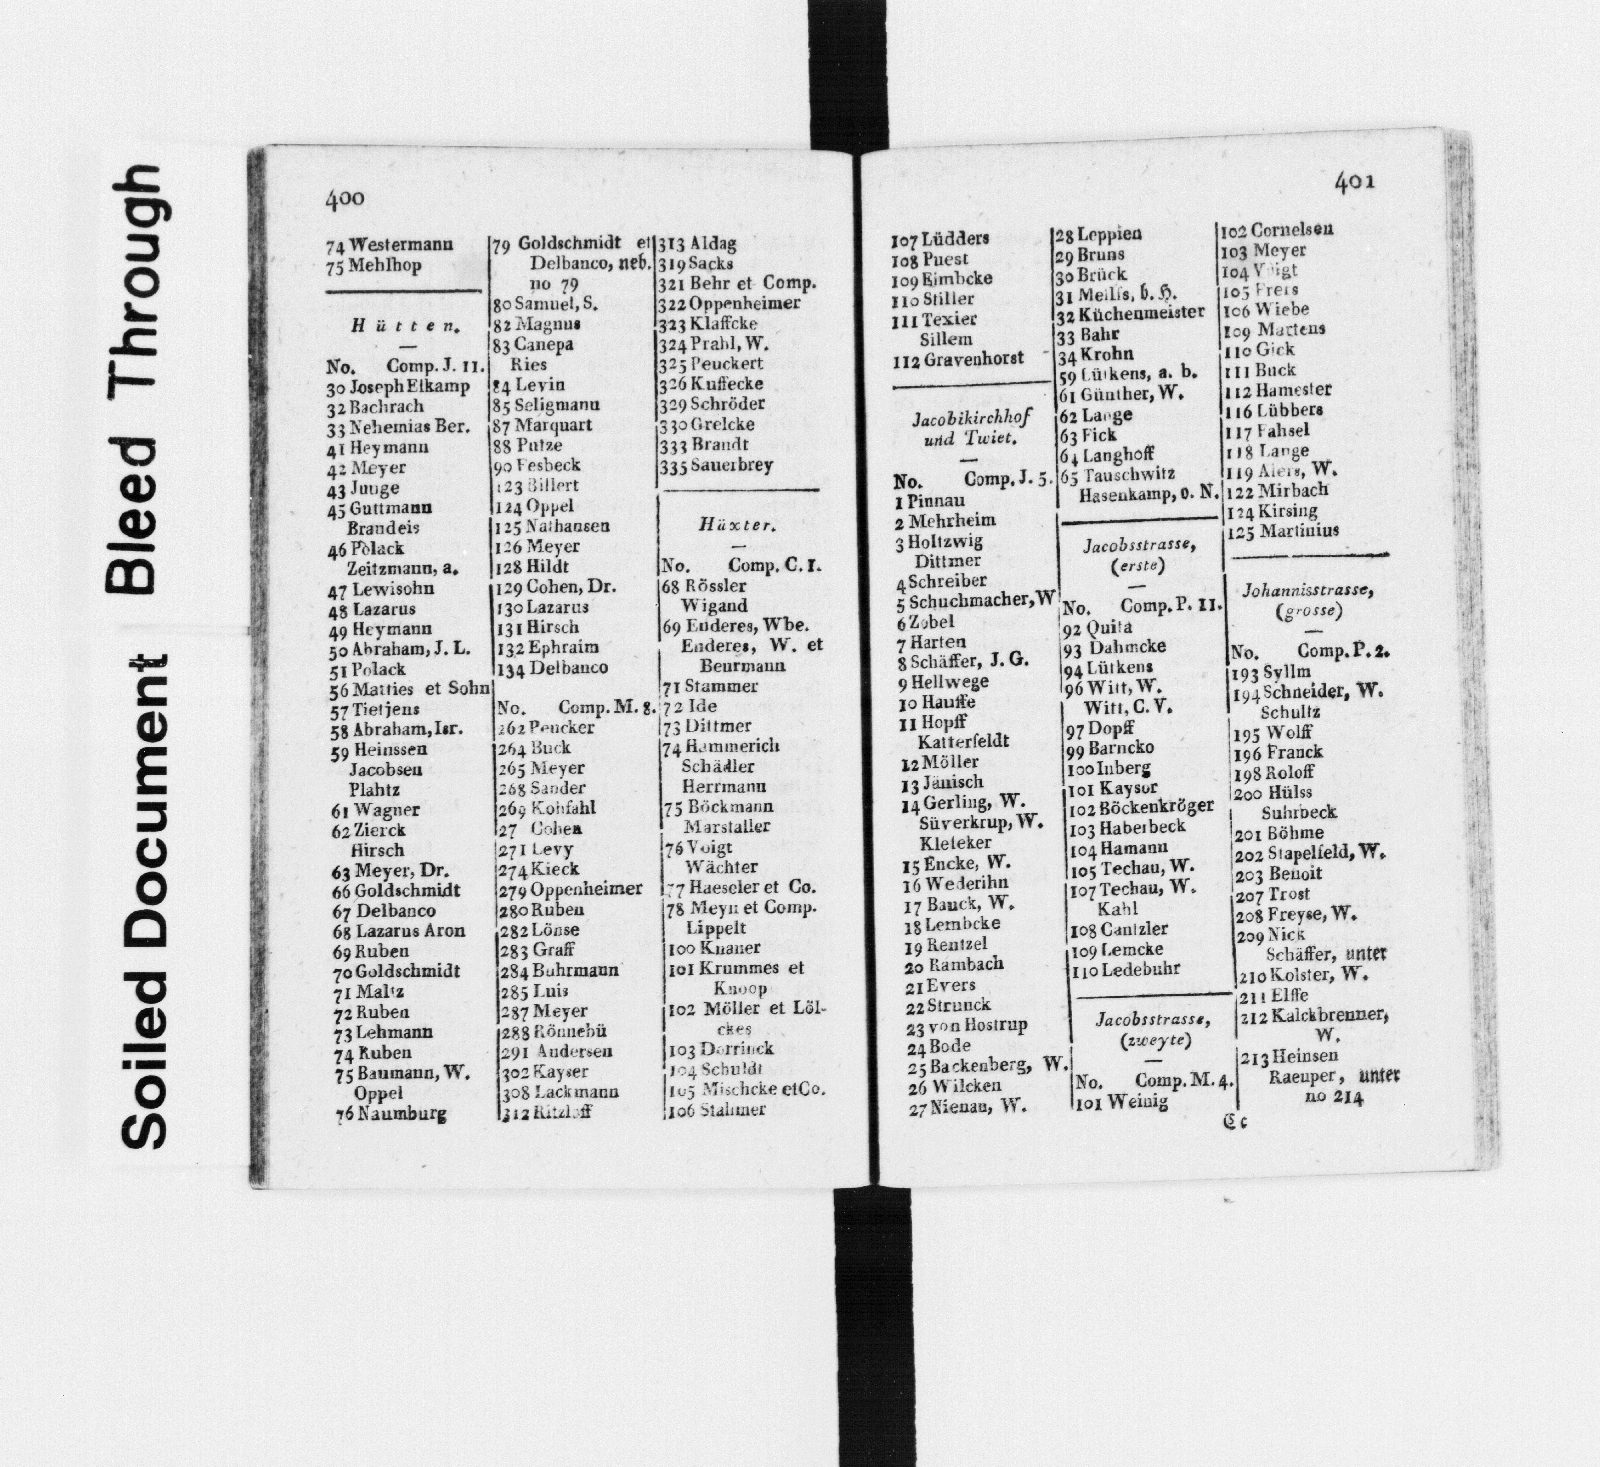 Soiled Document Bleed Through
400
74 Westermann
75 Mehlhop
Hütten.
No. Comp. J. 11.
30 Joseph Elkamp
32 Bachrach
33 Nehemias Ber.
41 Heymann
42 Meyer
43 Junge
45 Guttmann
Brandeis
46 Polack
Zeitzmann, a.
47 Lewisohn
48 Lazarus
49 Heymann
50 Abraham, J. L.
51 Polack
56 Matties et Sohn
57 Tietjens
58 Abraham, Isr.
59 Heinssen
Jacobsen
Plahtz
61 Wagner
62 Zierck
Hirsch
63 Meyer, Dr.
66 Goldschmidt
67 Delbanco
68 Lazarus Aron
69 Ruben
70 Goldschmidt
71 Maltz
72 Ruben
73 Lehmann
74 Ruben
75 Baumann, W.
Oppel
76 Naumburg
79 Goldschmidt et
Delbanco, neb.
no 79
80 Samuel, S.
82 Magnus
83 Canepa
Ries
84 Levin
85 Seligmann
87 Marquart
88 Putze
90 Fesbeck
123 Billert
124 Oppel
125 Nathansen
126 Meyer
128 Hildt
129 Cohen, Dr.
130 Lazarus
131 Hirsch
132 Ephraim
134 Delbanco
No. Comp. M. 8.
262 Pencker
264 Buck
265 Meyer
268 Sander
269 Kohfahl
27 Cohen
271 Levy
274 Kieck
279 Oppenheimer
280 Ruben
282 Lönse
283 Graff
284 Buhrmann
285 Luis
287 Meyer
288 Rönnebü
291 Andersen
302 Kayser
308 Lackmann
312 Ritzloff
313 Aldag
319 Sacks
321 Behr et Comp.
322 Oppenheimer
323 Klaffcke
324 Prahl, W.
325 Peuckert
326 Kuffecke
329 Schröder
330 Grelcke
333 Brandt
335 Sauerbrey
Hüxter.
No. Comp. C. 1.
68 Rössler
Wigand
69 Enderes, Wbe.
Enderes, W. et
Beurmann
71 Stammer
72 Ide
73 Dittmer
74 Hammerich
Schädler
Herrmann
75 Böckmann
Marstaller
76 Voigt
Wächter
77 Haeseler et Co.
78 Meyn et Comp.
Lippelt
100 Knauer
101 Krummes et
Knoop
102 Möller et Löl-
ckes
103 Dorrinck
104 Schuldt
105 Mischcke et Co.
106 Stahmer
401
107 Lüdders
108 Puest
109 Eimbcke
110 Stiller
111 Texier
Sillem
112 Gravenhorst
Jacobikirchhof
und Twiet.
No. Comp. J. 5.
1 Pinnau
2 Mehrheim
3 Holtzwig
Dittmer
4 Schreiber
5 Schuchmacher, W
6 Zobel
7 Harten
8 Schäffer, J. G.
9 Hellwege
10 Hauffe
11 Hopff
Katterfeldt
12 Möller
13 Jänisch
14 Gerling, W.
Süverkrup, W.
Kleteker
15 Encke, W.
16 Wederihn
17 Bauck, W.
18 Lembcke
19 Rentzel
20 Rambach
21 Evers
22 Strunck
23 von Hostrup
24 Bode
25 Backenberg, W.
26 Wilcken
27 Nienau, W.
28 Leppien
29 Bruns
30 Brück
31 Mellfs, b. H.
32 Küchenmeister
33 Bahr
34 Krohn
59 Lütkens, a. b.
61 Günther, W.
62 Lange
63 Fick
64 Langhoff
65 Tauschwitz
Hasenkamp, o. N.
Jacobsstrasse,
(erste)
No. Comp. P. 11.
92 Quita
93 Dahmcke
94 Lütkens
96 Witt, W.
Witt, C. V.
97 Dopff
99 Barncko
100 Inberg
101 Kaysor
102 Böckenkröger
103 Haberbeck
104 Hamann
105 Techau, W.
107 Techau, W.
Kahl
108 Cantzler
109 Lemcke
110 Ledebuhr
Jacobsstrasse,
(zweyte)
No. Comp. M. 4.
101 Weinig
102 Cornelsen
103 Meyer
104 Voigt
105 Frers
106 Wiebe
109 Martens
110 Gick
111 Buck
112 Hamester
116 Lübbers
117 Fahsel
118 Lange
119 Alers, W.
122 Mirbach
124 Kirsing
125 Martinius
Johannisstrasse,
(grosse)
No. Comp. P. 2.
193 Syllm
194 Schneider, W.
Schultz
195 Wolff
196 Franck
198 Roloff
200 Hülss
Suhrbeck
201 Böhme
202 Stapelfeld, W.
203 Benoit
207 Trost
208 Freyse, W.
209 Nick
Schäffer, unter
210 Kolster, W.
211 Elffe
212 Kalckbrenner,
W.
213 Heinsen
Raeuper, unter
no 214
C c